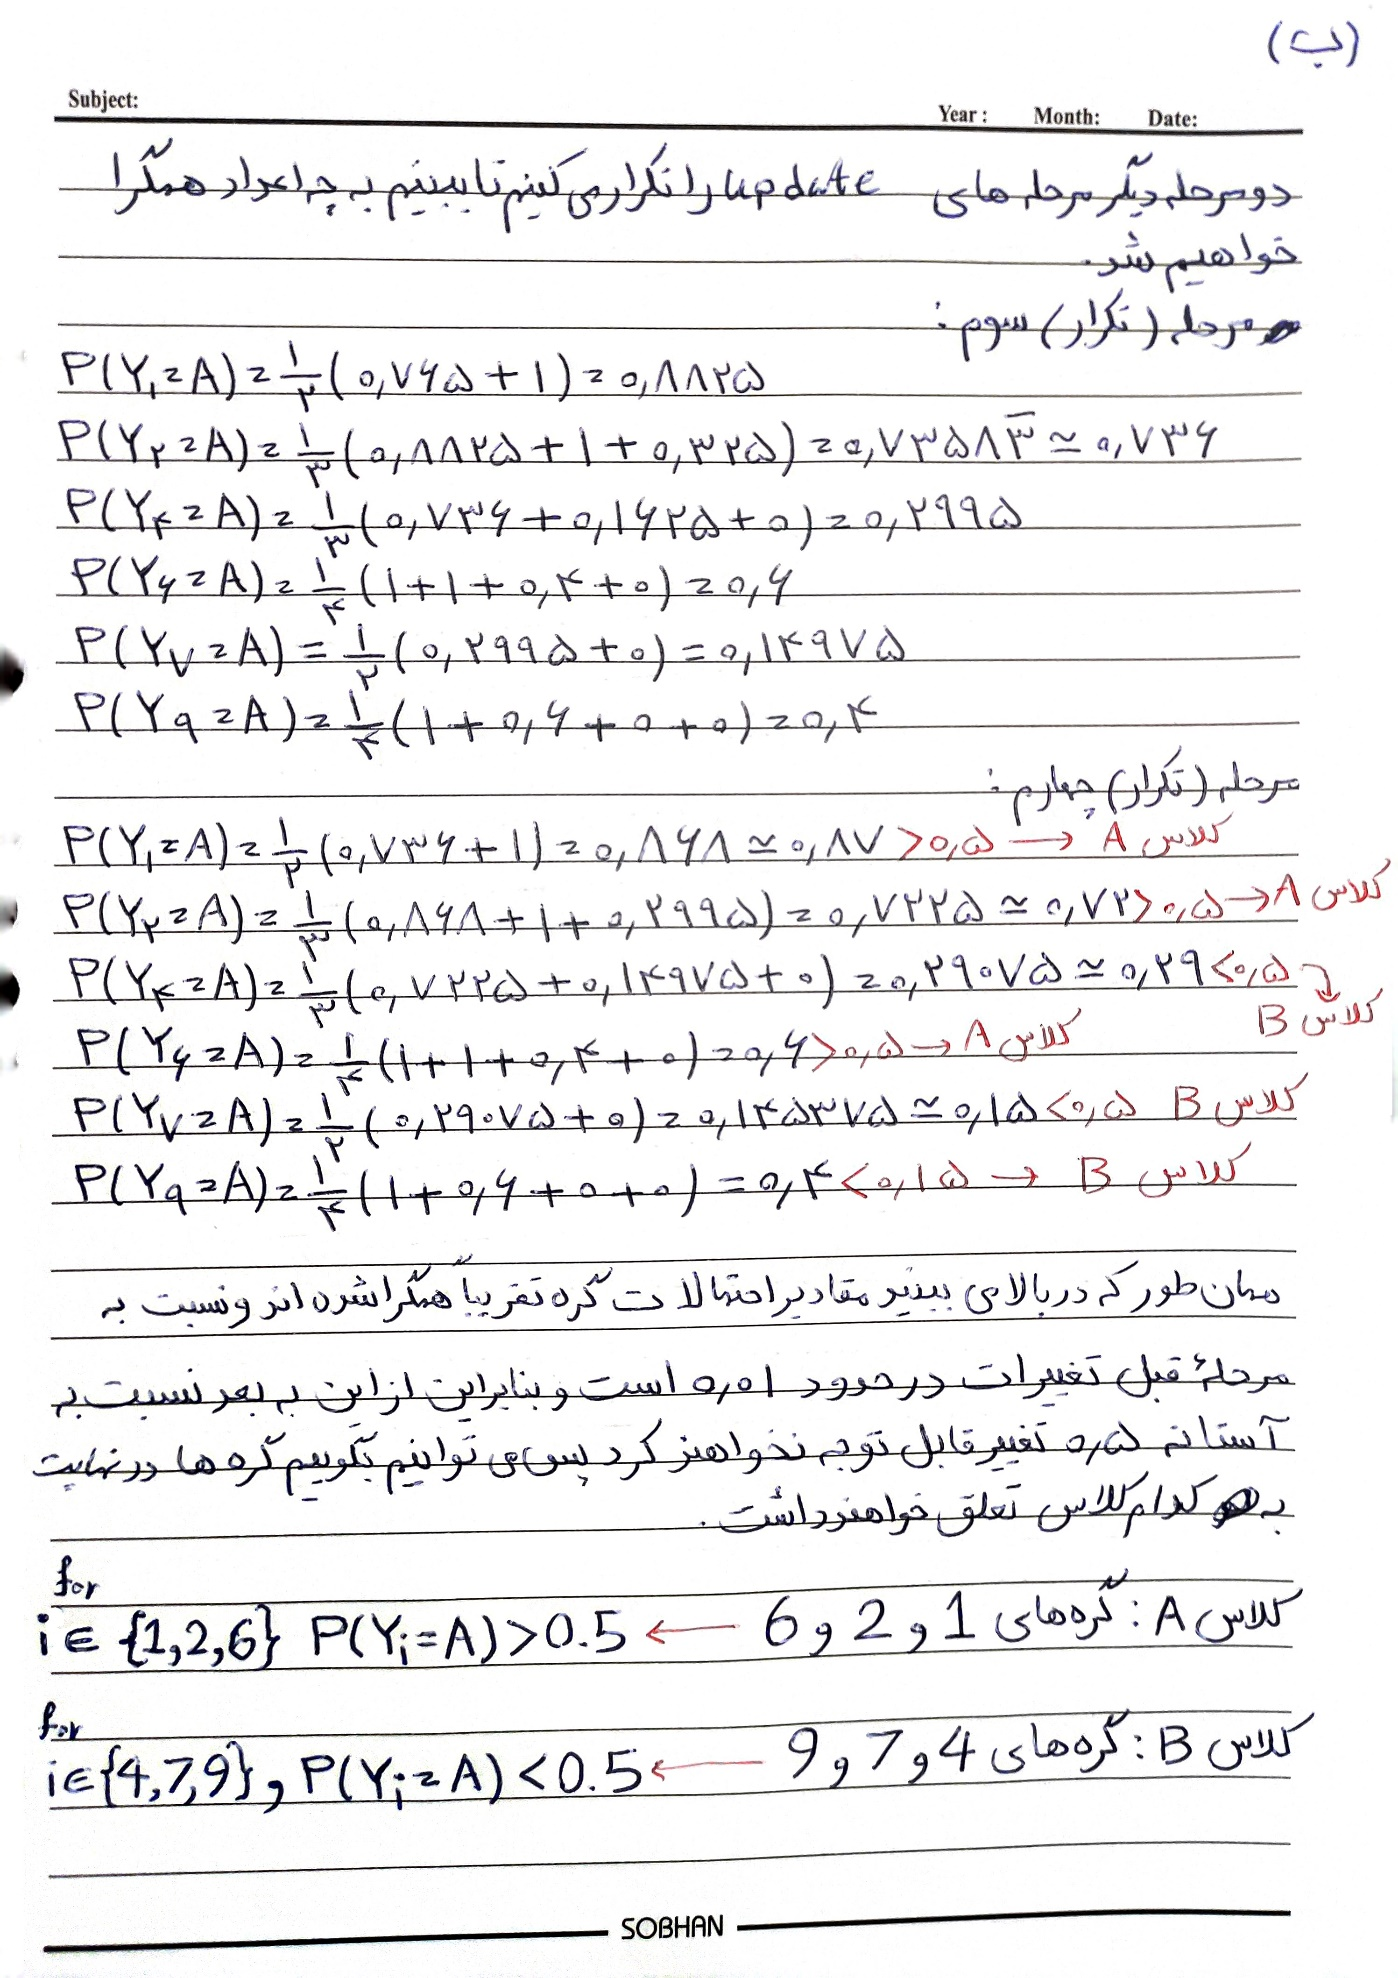 (ب)
Subject:
Year : Month: Date:
دو مرحله دیگر مرحله های update را تکرار می کنیم تا ببینیم به چه اعداد همگرا
خواهیم شد.
مرحله (تکرار) سوم :
P(Y₁=A)=۱/۲(۰,۷۶۵+۱)=۰,۸۸۲۵
P(Y₂=A)=۱/۳(۰,۸۸۲۵+۱+۰,۳۲۵)=۰,۷۳۵۸۳̅≃۰,۷۳۶
P(Y₄=A)=۱/۳(۰,۷۳۶+۰,۱۶۲۵+۰)=۰,۲۹۹۵
P(Y₆=A)=۱/۴(۱+۱+۰,۴+۰)=۰,۶
P(Y₇=A)=۱/۲(۰,۲۹۹۵+۰)=۰,۱۴۹۷۵
P(Y₉=A)=۱/۴(۱+۰,۶+۰+۰)=۰,۴
مرحله (تکرار) چهارم :
P(Y₁=A)=۱/۲(۰,۷۳۶+۱)=۰,۸۶۸≃۰,۸۷>۰,۵→ A کلاس
P(Y₂=A)=۱/۳(۰,۸۶۸+۱+۰,۲۹۹۵)=۰,۷۲۲۵≃۰,۷۲>۰,۵→A کلاس
P(Y₄=A)=۱/۳(۰,۷۲۲۵+۰,۱۴۹۷۵+۰)=۰,۲۹۰۷۵≃۰,۲۹<۰,۵
B کلاس
P(Y₆=A)=۱/۴(۱+۱+۰,۴+۰)=۰,۶>۰,۵→A کلاس
P(Y₇=A)=۱/۲(۰,۲۹۰۷۵+۰)=۰,۱۴۵۳۷۵≃۰,۱۵<۰,۵ B کلاس
P(Y₉=A)=۱/۴(۱+۰,۶+۰+۰)=۰,۴<۰,۱۵→ B کلاس
همان طور که در بالا می بینید مقادیر احتمالات گره تقریباً همگرا شده اند و نسبت به
مرحلۀ قبل تغییرات در حدود ۰,۰۱ است و بنابراین از این به بعد نسبت به
آستانه ۰,۵ تغییر قابل توجه نخواهند کرد پس می توانیم بگوییم گره ها در نهایت
به کدام کلاس تعلق خواهند داشت.
کلاس A : گره های 1 و 2 و 6 ← for i∈{1,2,6} P(Yᵢ=A)>0.5
کلاس B : گره های 4 و 7 و 9 ← for i∈{4,7,9}, P(Yᵢ=A)<0.5
SOBHAN